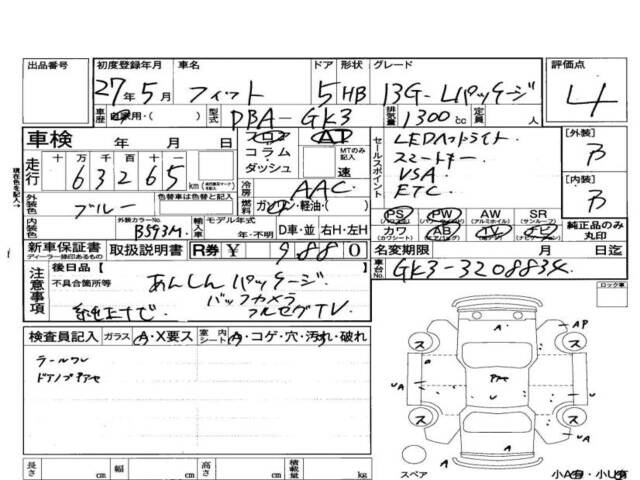 出品番号 初度登録年月 車名 ドア 形状 グレード 評価点
27年5月 フィット 5 HB 13G-Lパッケージ 4
車歴 自家用・( ) 型式 DBA-GK3 排気量 1300cc 定員 人
車検 年 月 日 フロア AT セールスポイント LEDヘッドライト [外装]
コラム MTのみ記入 スマートキー B
走行 十 万 千 百 十 ダッシュ 速 VSA [内装]
63265 km 冷房 AAC ETC B
外装色 ブルー 色替車は色替と記入 燃料 ガソリン・軽油・( )
PS PW AW SR
内装色 外装カラーNo. B593M 輸入車 モデル年式 年・不明 D車・並 右H・左H カワ AB TV ナビ 純正品のみ丸印
新車保証書 取扱説明書 R券 ¥ 9880 名変期限 月 日迄
ディーラー捺印あるもの
車台No. GK3-3208834
注意事項 後日品【 】 あんしんパッケージ
不具合箇所等 バックカメラ
純正ナビ フルセグTV ロック車
検査員記入 ガラス A・X要ス 室内シート A・コゲ・穴・汚れ・破れ
現在色を記入→
長さ cm 幅 cm 高さ cm 積載量 kg
スペア 小A有・小U有